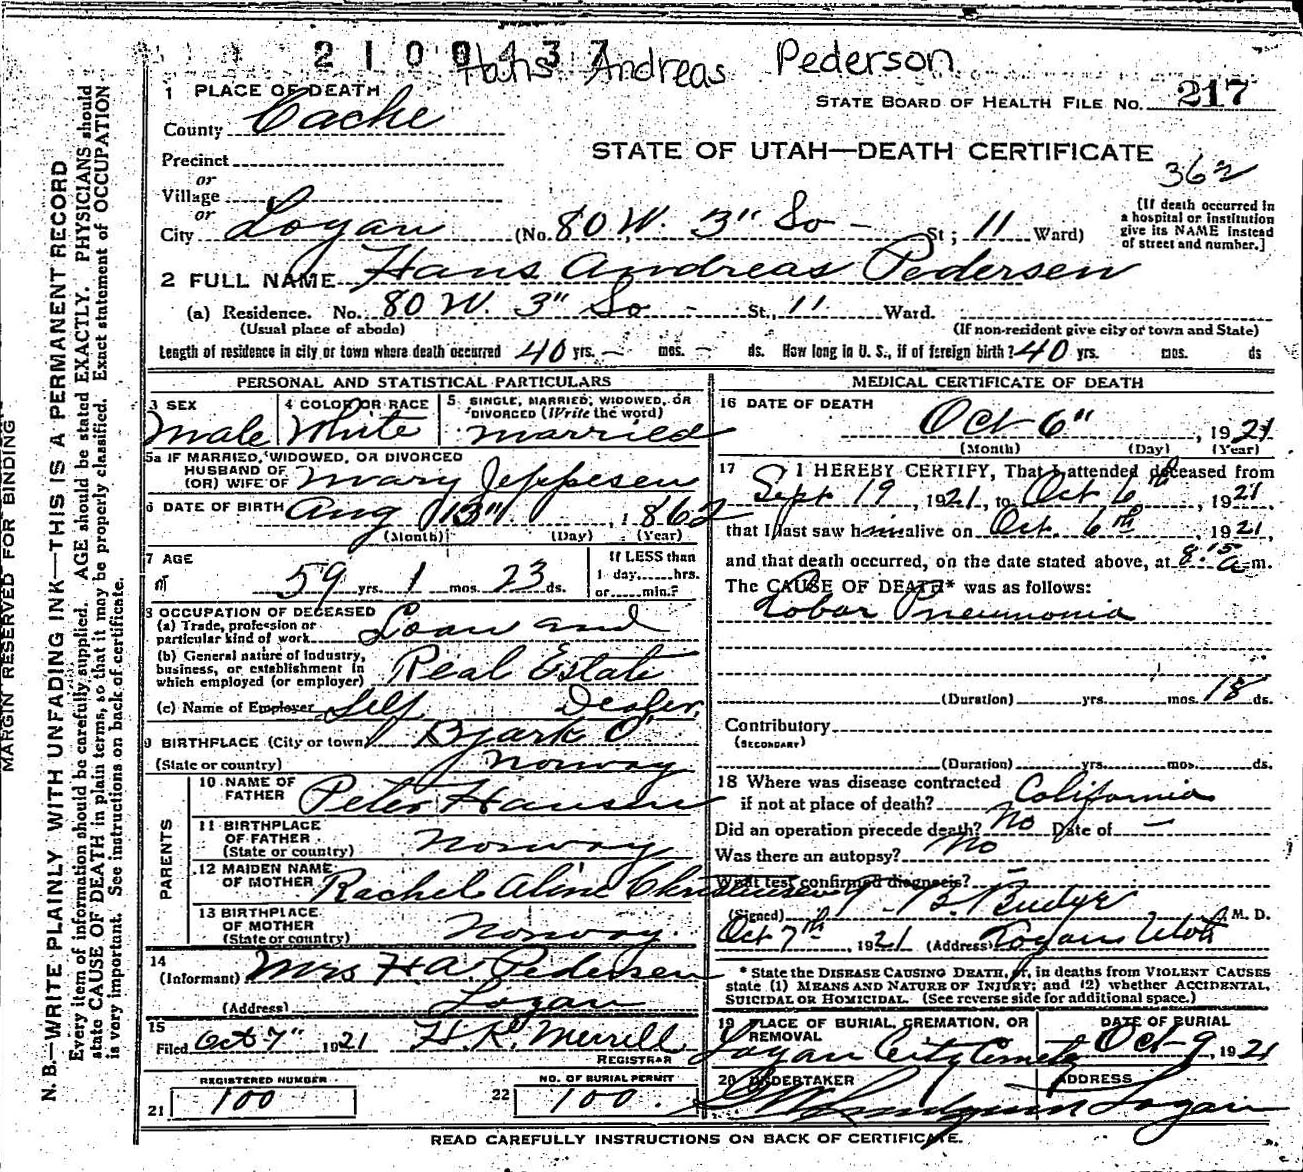 2100437
Hans Andreas Pederson
1 PLACE OF DEATH
STATE BOARD OF HEALTH FILE NO. 217
County Cache
STATE OF UTAH—DEATH CERTIFICATE
Precinct
362
or
Village
or
City Logan (No. 80 W. 3" So - St; 11 Ward)
[If death occurred in
a hospital or institution
give its NAME instead
of street and number.]
2 FULL NAME Hans Andreas Pedersen
(a) Residence. No. 80 W. 3" So - St., 11 Ward.
(Usual place of abode) (If non-resident give city or town and State)
Length of residence in city or town where death occurred 40 yrs. - mos. - ds. How long in U. S., if of foreign birth? 40 yrs. mos. ds
PERSONAL AND STATISTICAL PARTICULARS
3 SEX
Male
4 COLOR OR RACE
White
5 SINGLE, MARRIED, WIDOWED, OR
DIVORCED (Write the word)
married
5a IF MARRIED, WIDOWED, OR DIVORCED
HUSBAND OF
(OR) WIFE OF Mary Jeppesen
6 DATE OF BIRTH Aug 13" , 1862
(Month) (Day) (Year)
7 AGE
59 yrs. 1 mos. 23 ds.
If LESS than
1 day......hrs.
or......min.?
8 OCCUPATION OF DECEASED
(a) Trade, profession or
particular kind of work Loan and
(b) General nature of industry,
business, or establishment in
which employed (or employer) Real Estate
(c) Name of Employer Self Dealer
9 BIRTHPLACE (City or town) Bjark O
(State or country) Norway
PARENTS
10 NAME OF
FATHER Peter Hansen
11 BIRTHPLACE
OF FATHER
(State or country) Norway
12 MAIDEN NAME
OF MOTHER Rachel Aline
13 BIRTHPLACE
OF MOTHER
(State or country) Norway.
14
(Informant) Mrs H A Pedersen
(Address) Logan
15
Filed Oct 7" 1921 H. R. Merrill
REGISTRAR
REGISTERED NUMBER
21 100
NO. OF BURIAL PERMIT
22 100.
MEDICAL CERTIFICATE OF DEATH
16 DATE OF DEATH
Oct 6" , 1921
(Month) (Day) (Year)
17 I HEREBY CERTIFY, That I attended deceased from
Sept 19, 1921, to Oct 6th, 1921,
that I last saw him alive on Oct. 6th, 1921,
and that death occurred, on the date stated above, at 8:15 a m.
The CAUSE OF DEATH* was as follows:
Lobar Pneumonia
(Duration) yrs. mos. 18 ds.
Contributory
(SECONDARY)
(Duration) yrs. mos. ds.
18 Where was disease contracted
if not at place of death? California
Did an operation precede death? No Date of -
Was there an autopsy? No
What test confirmed diagnosis?
(Signed) B. Budge, M. D.
Oct 7th, 1921 (Address) Logan Utah
* State the DISEASE CAUSING DEATH, or, in deaths from VIOLENT CAUSES
state (1) MEANS AND NATURE OF INJURY; and (2) whether ACCIDENTAL,
SUICIDAL OR HOMICIDAL. (See reverse side for additional space.)
19 PLACE OF BURIAL, CREMATION, OR
REMOVAL
Logan City
DATE OF BURIAL
Oct-9, 1921
20 UNDERTAKER
ADDRESS
Logan
READ CAREFULLY INSTRUCTIONS ON BACK OF CERTIFICATE.
MARGIN RESERVED FOR BINDING
N. B.—WRITE PLAINLY WITH UNFADING INK—THIS IS A PERMANENT RECORD
Every item of information should be carefully supplied. AGE should be stated EXACTLY. PHYSICIANS should
state CAUSE OF DEATH in plain terms, so that it may be properly classified. Exact statement of OCCUPATION
is very important. See instructions on back of certificate.